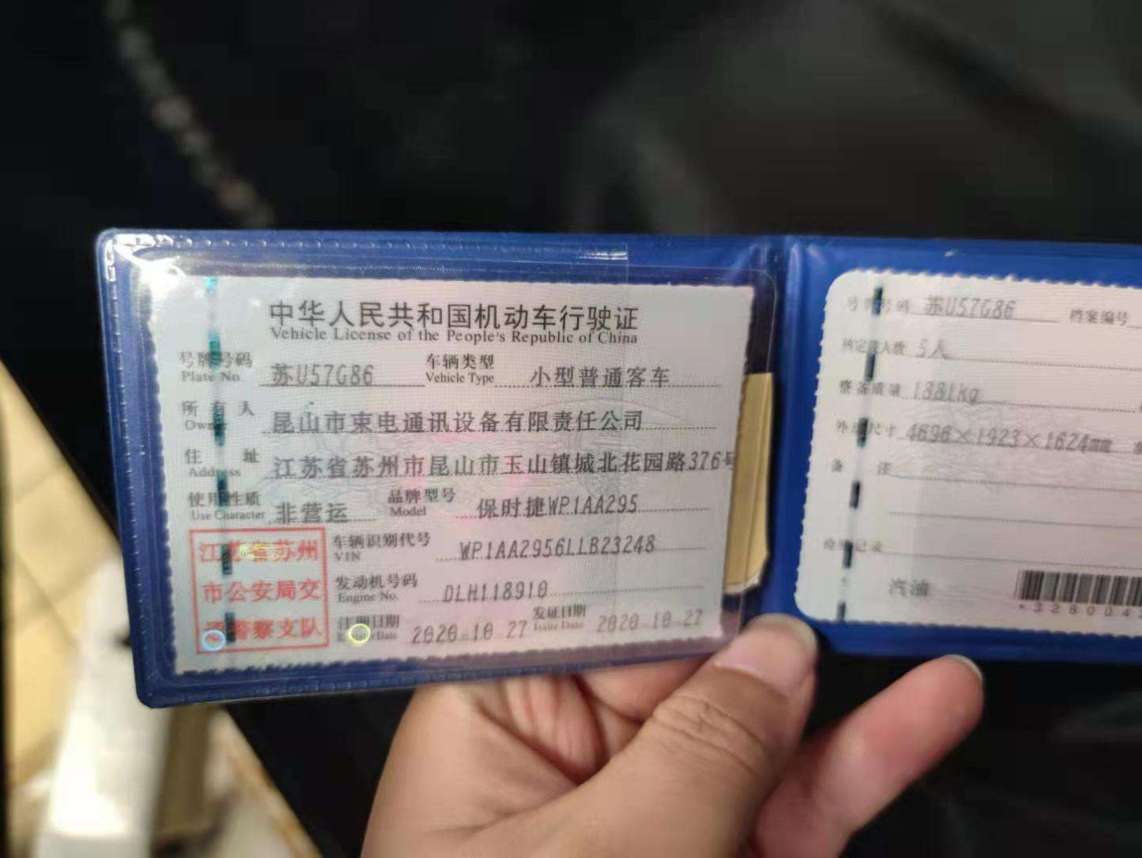 中华人民共和国机动车行驶证
Vehicle License of the People's Republic of China
号牌号码 苏U57G86 车辆类型 小型普通客车
Plate No. Vehicle Type
所有人 昆山市束电通讯设备有限责任公司
Owner
住址 江苏省苏州市昆山市玉山镇城北花园路376号
Address
使用性质 非营运 品牌型号 保时捷WP1AA295
Use Character Model
车辆识别代号 WP1AA2956LLB23248
VIN
发动机号码 DLH118910
Engine No.
2020-10-27 发证日期 2020-10-27
Issue Date
江苏省苏州
市公安局交
警察支队
号牌号码 苏U57G86 档案编号
核定载人数 5人
整备质量
外廓尺寸 4696×1923×1624mm
备注
检验记录
汽油